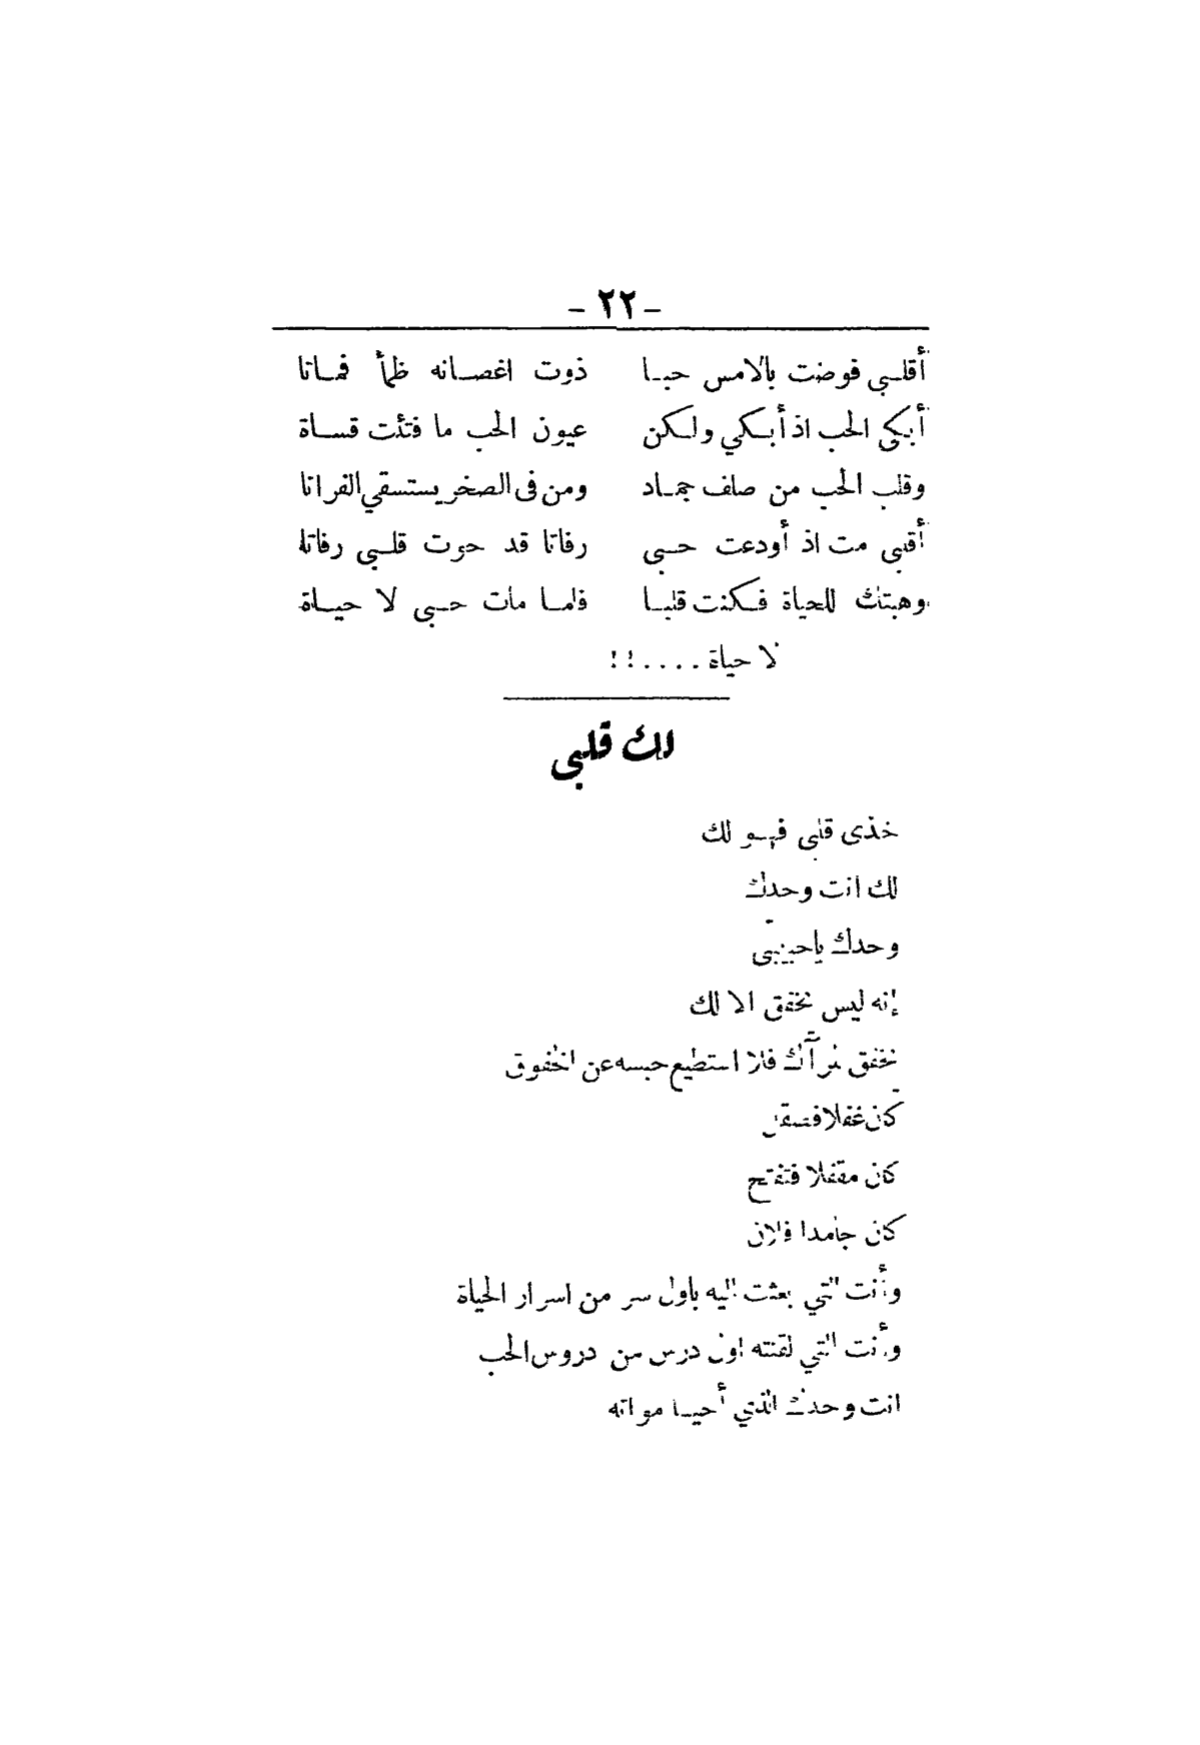 - ٢٢ -
أقلبي قوضت بالامس حبا ذوت اغصانه ظمأ فماتا
أبكى الحب اذ أبكي ولكن عيون الحب ما فتئت قساة
وقلب الحب من صلف جماد ومن فى الصخر يستسقي الفراتا
أقلبى مت اذ أودعت حبى رفاتا قد حوت قلبى رفاتا
وهبتك للحياة فكنت قلبا فلما مات حبى لا حياة
لا حياة ....!!
لك قلبى
خذى قلبى فهو لك
لك انت وحدك
وحدك ياحبيبتى
إنه ليس يخفق الا لك
يخفق لمرآك فلا استطيع حبسه عن الخفوق
كان غفلا فصقل
كان مقفلا فتفتح
كان جامدا فلان
وأنت التي بعثت اليه باول سر من اسرار الحياة
وأنت التي لقنته اول درس من دروس الحب
انت وحدك الذي أحيا مواته